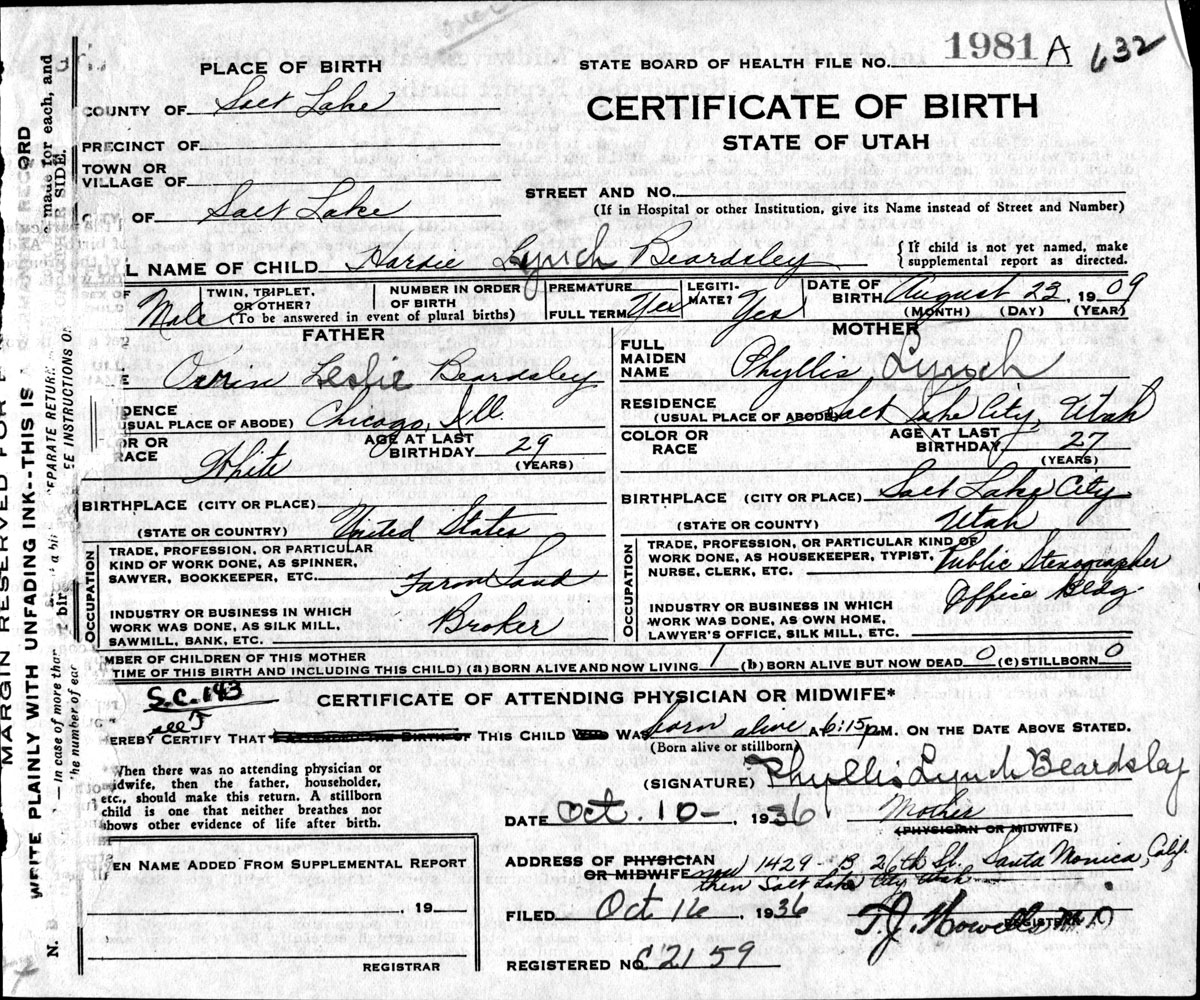 1981 A 632
PLACE OF BIRTH
STATE BOARD OF HEALTH FILE NO.
COUNTY OF Salt Lake
CERTIFICATE OF BIRTH
STATE OF UTAH
PRECINCT OF
TOWN OR
VILLAGE OF
STREET AND NO.
(If in Hospital or other Institution, give its Name instead of Street and Number)
OF Salt Lake
L NAME OF CHILD Hardie Lynch Beardsley
{If child is not yet named, make
supplemental report as directed.
Male
TWIN, TRIPLET,
OR OTHER?
(To be answered in event of plural births)
NUMBER IN ORDER
OF BIRTH
PREMATURE
FULL TERM Yes
LEGITI-
MATE? Yes
DATE OF
BIRTH August 23, 1909
(MONTH) (DAY) (YEAR)
FATHER
Leslie Beardsley
DENCE
(USUAL PLACE OF ABODE) Chicago, Ill.
OR OR
RACE White
AGE AT LAST
BIRTHDAY 29
(YEARS)
BIRTHPLACE (CITY OR PLACE)
(STATE OR COUNTRY) United States
OCCUPATION
TRADE, PROFESSION, OR PARTICULAR
KIND OF WORK DONE, AS SPINNER,
SAWYER, BOOKKEEPER, ETC. Farm Land
INDUSTRY OR BUSINESS IN WHICH
WORK WAS DONE, AS SILK MILL,
SAWMILL, BANK, ETC. Broker
MOTHER
FULL
MAIDEN
NAME Phyllis Lynch
RESIDENCE
(USUAL PLACE OF ABODE) Salt Lake City, Utah
COLOR OR
RACE
AGE AT LAST
BIRTHDAY 27
(YEARS)
BIRTHPLACE (CITY OR PLACE) Salt Lake City
(STATE OR COUNTY) Utah
OCCUPATION
TRADE, PROFESSION, OR PARTICULAR KIND OF
WORK DONE, AS HOUSEKEEPER, TYPIST,
NURSE, CLERK, ETC. Public Stenographer
INDUSTRY OR BUSINESS IN WHICH
WORK WAS DONE, AS OWN HOME,
LAWYER'S OFFICE, SILK MILL, ETC. Office Bldg.
MBER OF CHILDREN OF THIS MOTHER
TIME OF THIS BIRTH AND INCLUDING THIS CHILD) (a) BORN ALIVE AND NOW LIVING 1 (b) BORN ALIVE BUT NOW DEAD 0 (c) STILLBORN 0
S.C. 143
CERTIFICATE OF ATTENDING PHYSICIAN OR MIDWIFE*
EREBY CERTIFY THAT I ATTENDED THE BIRTH OF THIS CHILD WAS born alive A 6:15 P.M. ON THE DATE ABOVE STATED.
(Born alive or stillborn)
*When there was no attending physician or
midwife, then the father, householder,
etc., should make this return. A stillborn
child is one that neither breathes nor
shows other evidence of life after birth.
(SIGNATURE) Phyllis Lynch Beardsley
DATE Oct. 10-, 1936
Mother
(PHYSICIAN OR MIDWIFE)
EN NAME ADDED FROM SUPPLEMENTAL REPORT
, 19
REGISTRAR
ADDRESS OF PHYSICIAN
OR MIDWIFE now 1429-B 26th St. Santa Monica, Calif.
then Salt Lake City Utah
FILED Oct 16, 1936
T.J. Howells M.D.
REGISTRAR
REGISTERED NO. C2159
MARGIN RESERVED FOR
WRITE PLAINLY WITH UNFADING INK--THIS IS A
RECORD
N.
—In case of more than
EPARATE RETURN
e made for each, and
the number of ea
EE INSTRUCTIONS O
SIDE.